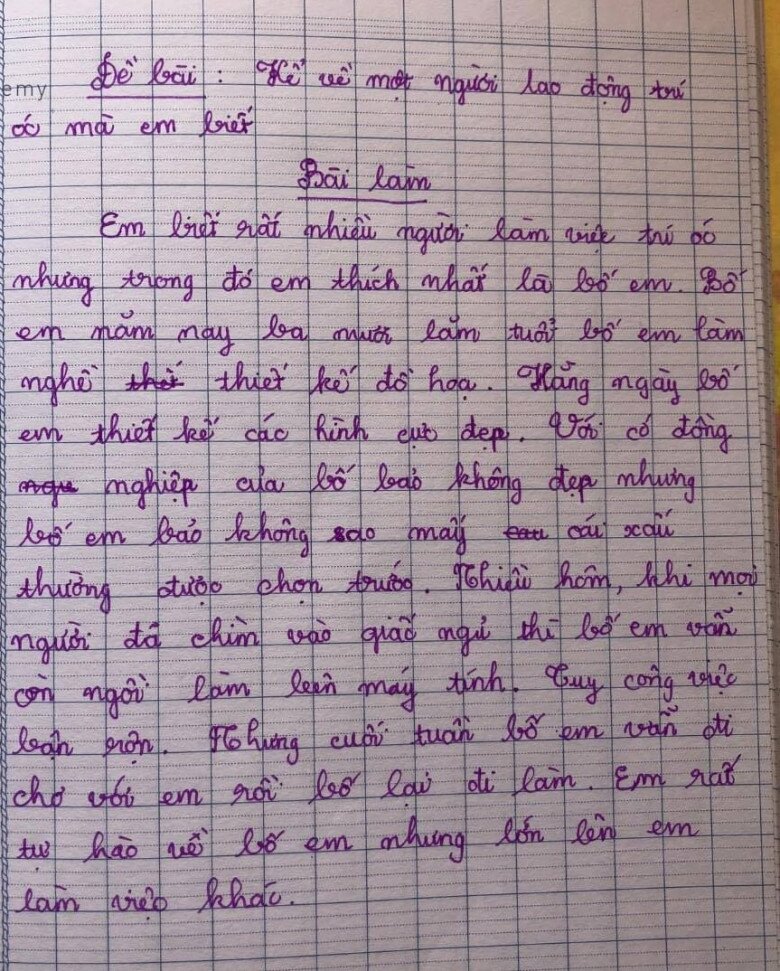 emy
Đề bài : Kể về một người lao động trí
óc mà em biết
Bài làm
Em biết rất nhiều người làm việc trí óc
nhưng trong đó em thích nhất là bố em. Bố
em năm nay ba mươi lăm tuổi bố em làm
nghề thiết kế đồ họa. Hằng ngày bố
em thiết kế các hình cực đẹp. Với có đồng
nghiệp của bố bảo không đẹp nhưng
bố em bảo không sao mấy cái xấu
thường được chọn trước. Nhiều hôm, khi mọi
người đã chìm vào giấc ngủ thì bố em vẫn
còn ngồi làm máy tính. Tuy công việc
bận rộn. Nhưng cuối tuần bố em vẫn đi
chơ với em rồi bố lại đi làm. Em rất
tự hào về bố em nhưng lớn lên em
làm việc khác.